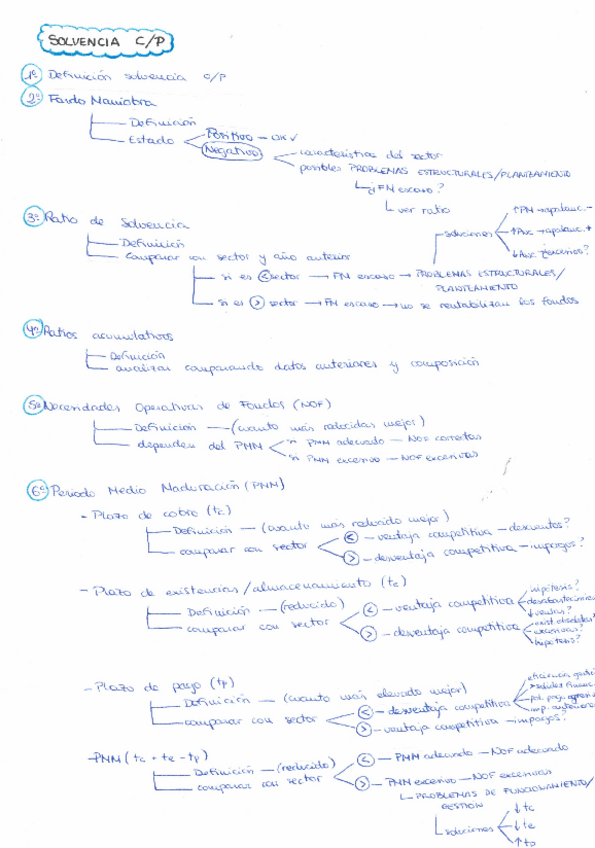 SOLVENCIA C/P
1º Definición solvencia c/p
2º Fondo Maniobra
Definición
Estado
Positivo — OK ✓
Negativo
características del sector
posibles PROBLEMAS ESTRUCTURALES/PLANTEAMIENTO
¿FM escaso?
ver ratio
3º Ratio de Solvencia
Definición
comparar con sector y año anterior
si es < sector → FM escaso → PROBLEMAS ESTRUCTURALES/
PLANTEAMIENTO
soluciones
↑PN → apalanc. -
↑Pnc → apalanc. +
↓Anc → ¿excesivos?
si es > sector → FM escaso → no se rentabilizan los fondos
4º Ratios acumulativos
Definición
analizar comparando datos anteriores y composición
5º Necesidades Operativas de Fondos (NOF)
Definición — (cuanto más reducidas mejor)
dependen del PMM
si PMM adecuado — NOF correctas
si PMM excesivo — NOF excesivas
6º Periodo Medio Maduración (PMM)
- Plazo de cobro (tc)
Definición — (cuanto más reducido mejor)
comparar con sector
< — ventaja competitiva — descuentos?
> — desventaja competitiva — impagos?
- Plazo de existencias/almacenamiento (te)
Definición — (reducido)
comparar con sector
< — ventaja competitiva
hipótesis?
desabastecimiento
↓ ventas?
> — desventaja competitiva
exist. obsoletas?
excesivas?
hipótesis?
- Plazo de pago (tp)
Definición — (cuanto más elevado mejor)
comparar con sector
< — desventaja competitiva
eficiencia
pol. pago
> — ventaja competitiva — impagos?
- PMM (tc + te - tp)
Definición — (reducido)
comparar con sector
< — PMM adecuado — NOF adecuado
> — PMM excesivo — NOF excesivas
PROBLEMAS DE FUNCIONAMIENTO/
GESTIÓN
soluciones
↓ tc
↓ te
↑ tp